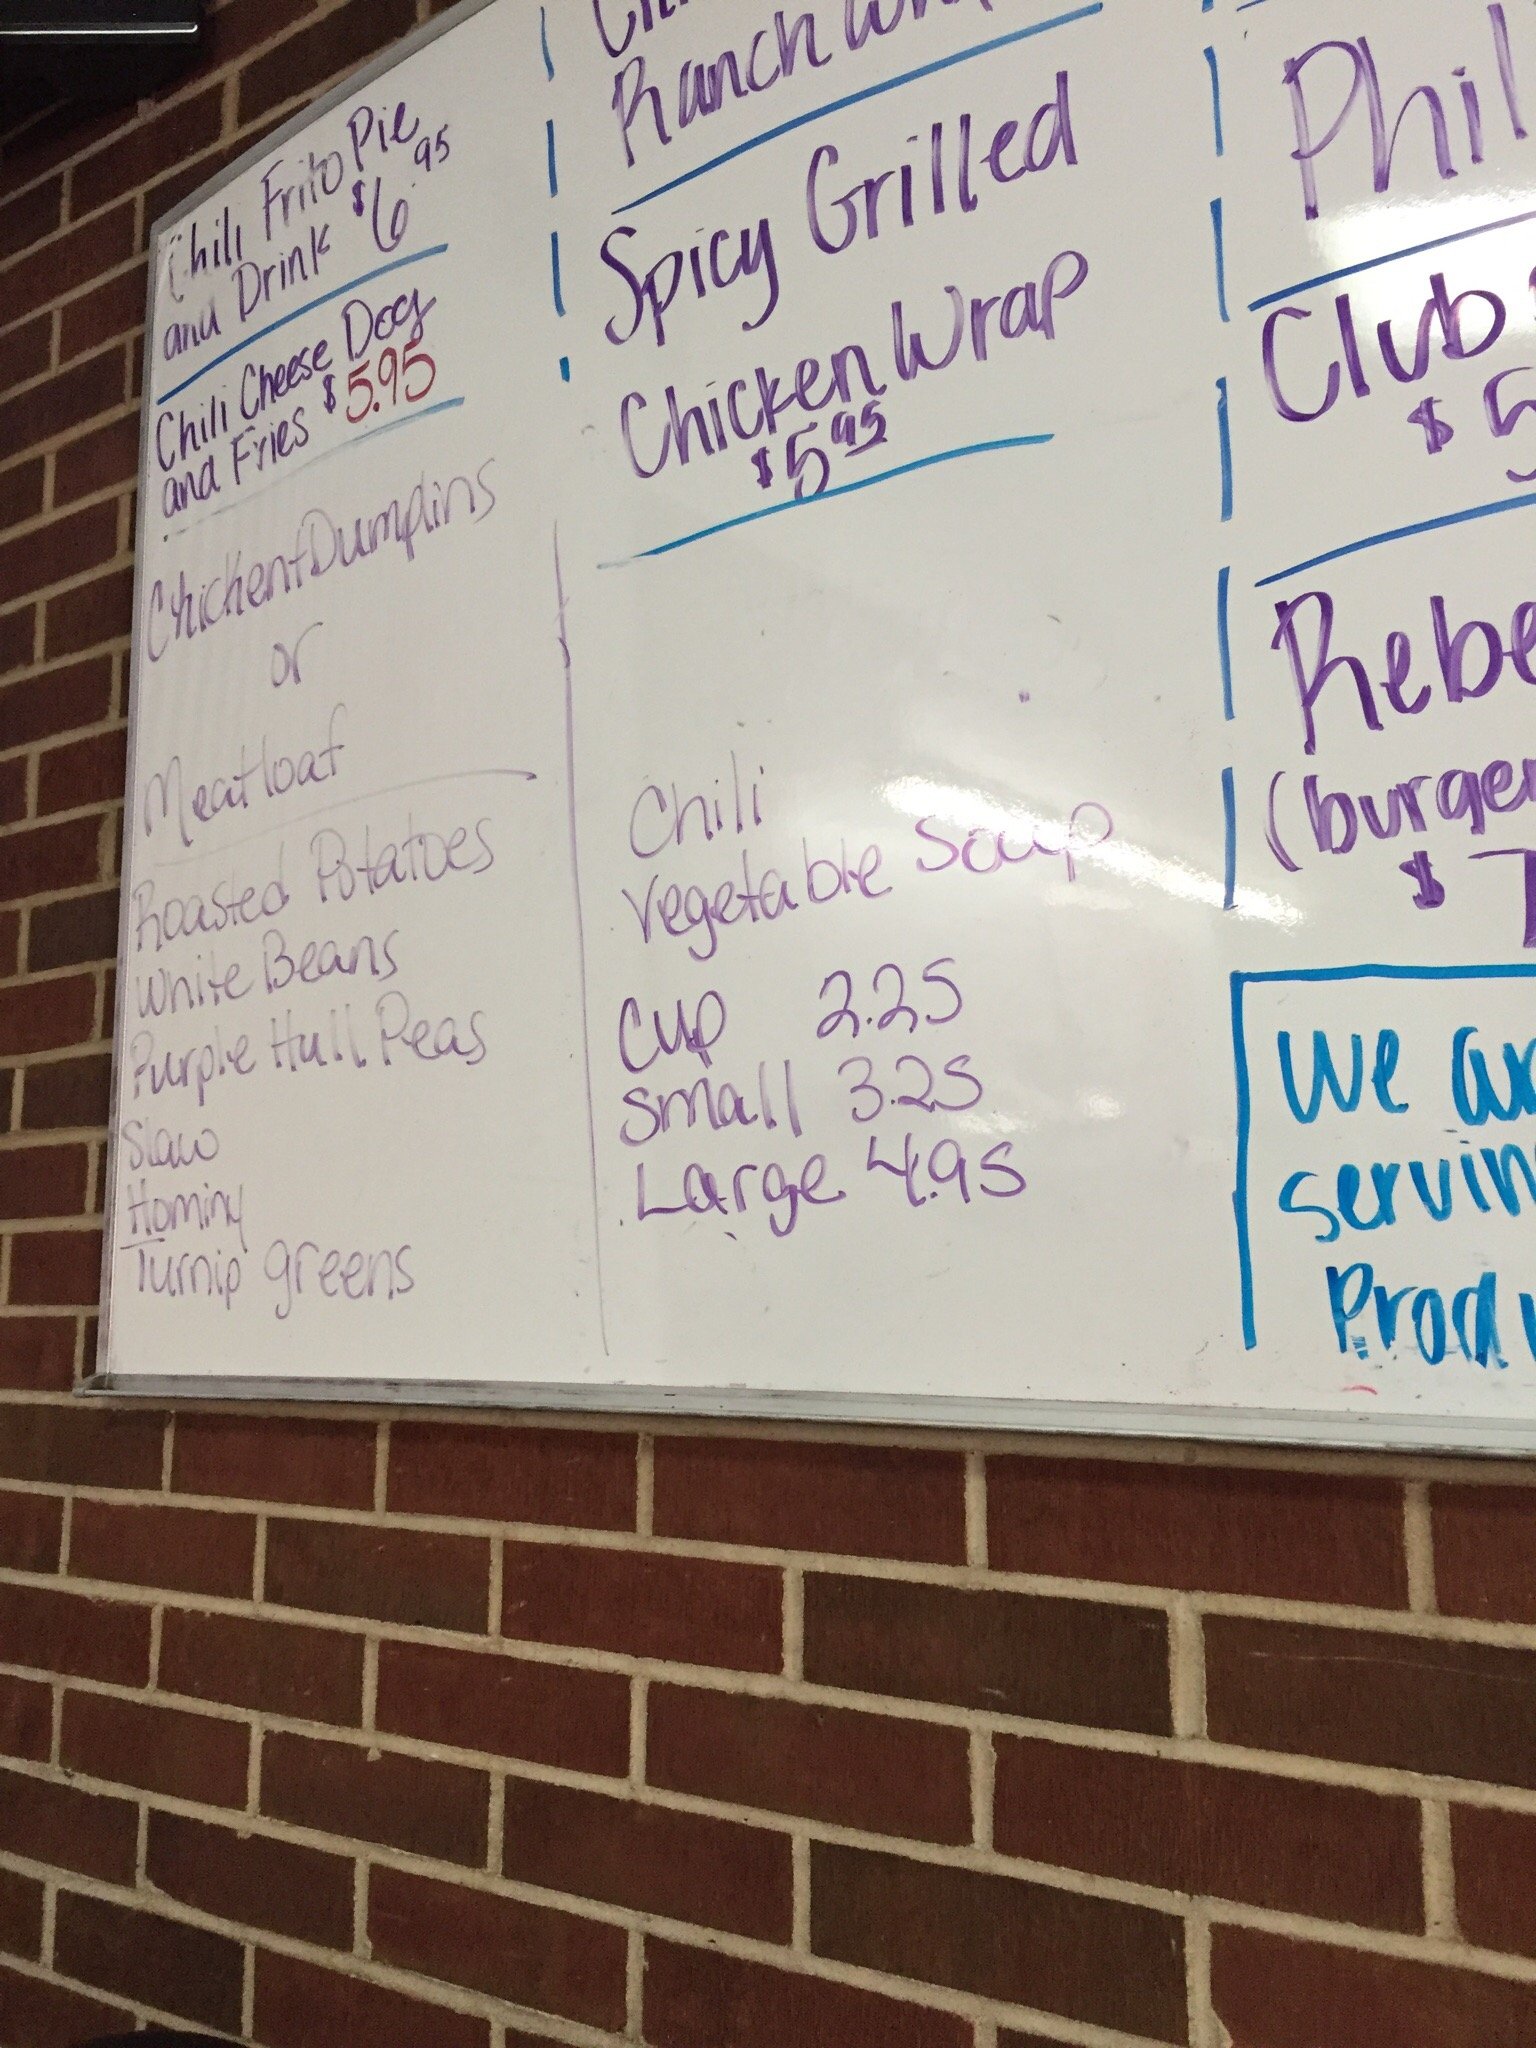 Chili Frito Pie
and Drink $6.95
Chili Cheese Dog
and Fries $5.95
Chicken+Dumplins
or
Meatloaf
Roasted Potatoes
White Beans
Purple Hull Peas
Slaw
Hominy
Turnip greens
Ranch
Spicy Grilled
Chicken Wrap
$5.95
Chili
Vegetable Soup
Cup 2.25
Small 3.25
Large 4.95
Phil
Club
$5
Rebe
(burger
$7
We ar
servin
Produ